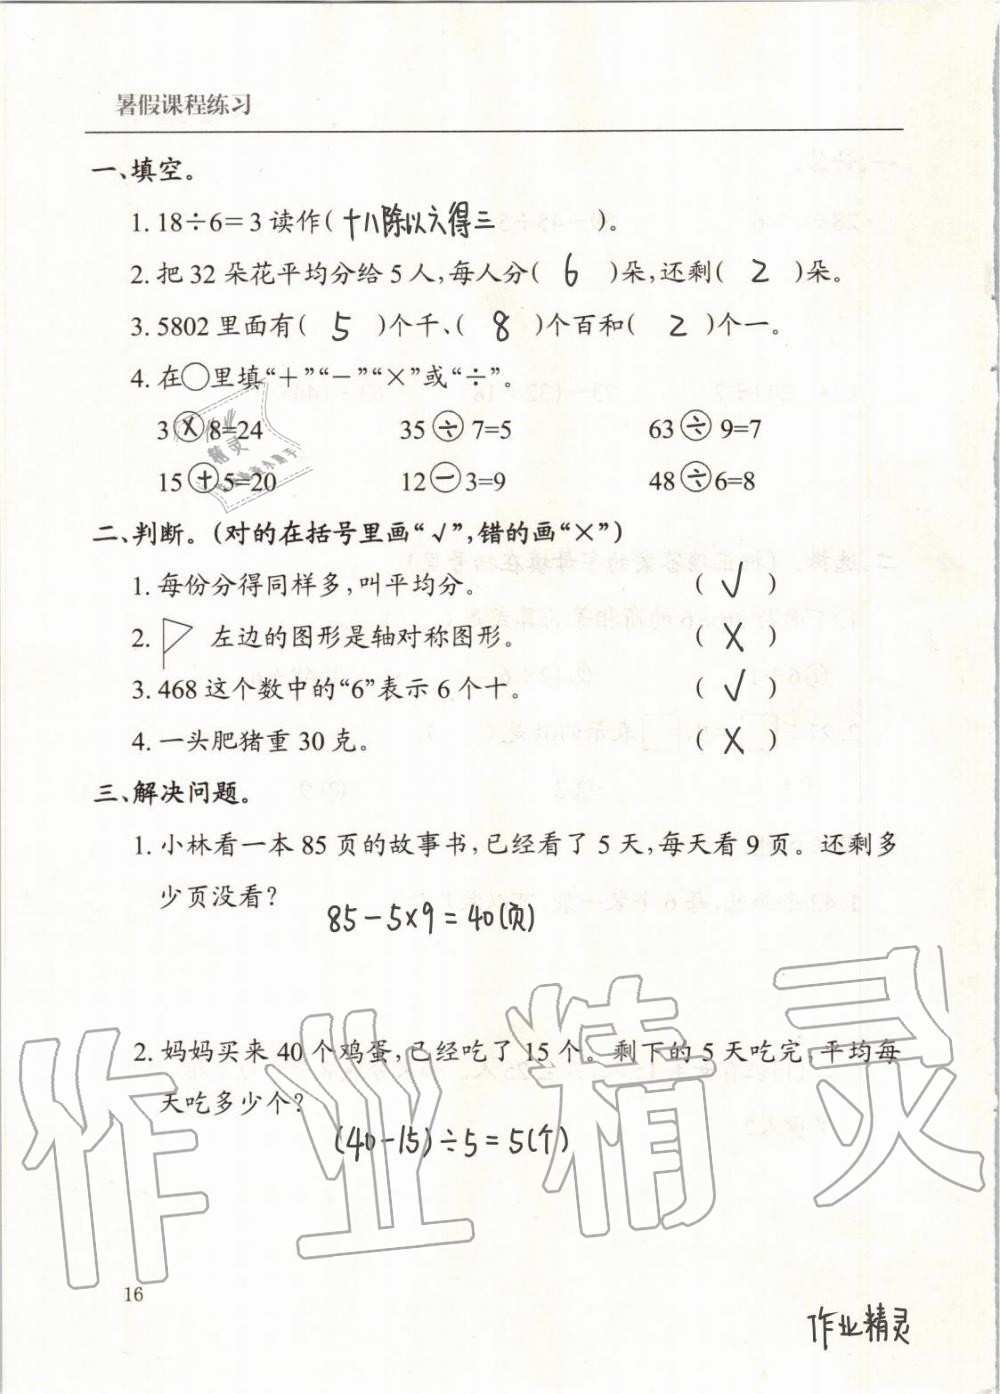 暑假课程练习
一、填空。
1. 18÷6=3 读作( 十八除以六得三 )。
2. 把 32 朵花平均分给 5 人,每人分( 6 )朵,还剩( 2 )朵。
3. 5802 里面有( 5 )个千、( 8 )个百和( 2 )个一。
4. 在○里填“+”“-”“×”或“÷”。
3 × 8=24 35 ÷ 7=5 63 ÷ 9=7
15 + 5=20 12 - 3=9 48 ÷ 6=8
二、判断。(对的在括号里画“√”,错的画“×”)
1. 每份分得同样多,叫平均分。 ( √ )
2. 左边的图形是轴对称图形。 ( × )
3. 468 这个数中的“6”表示 6 个十。 ( √ )
4. 一头肥猪重 30 克。 ( × )
三、解决问题。
1. 小林看一本 85 页的故事书,已经看了 5 天,每天看 9 页。还剩多
少页没看?
85-5×9=40(页)
2. 妈妈买来 40 个鸡蛋,已经吃了 15 个。剩下的 5 天吃完,平均每
天吃多少个?
(40-15)÷5=5(个)
作业精灵
16
作业精灵